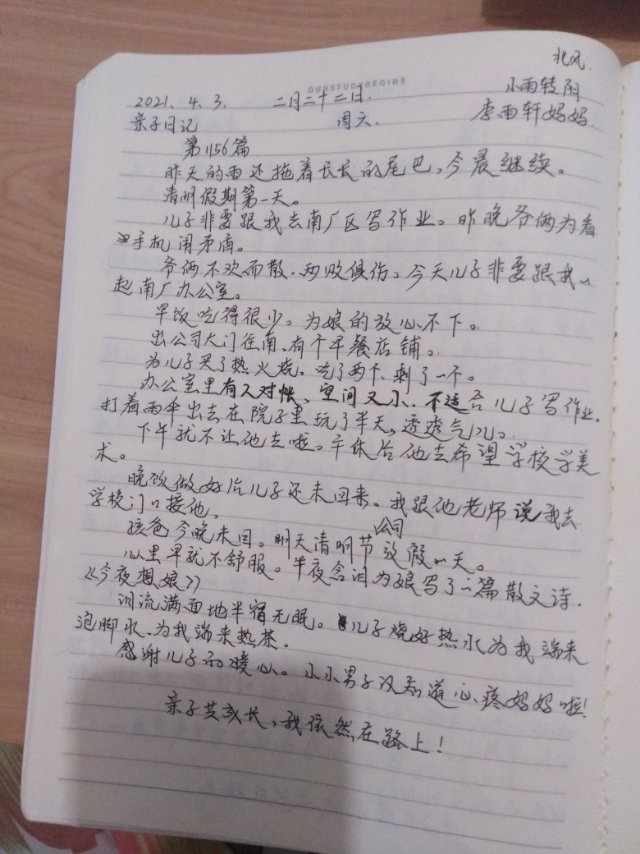 北风.
OURSTUDYBEGINS
2021. 4. 3. 二月二十二日. 小雨转阴
亲子日记 周六. 李雨轩妈妈.
第1156篇
昨天的雨还拖着长长的尾巴,今晨继续。
清明假期第一天。
儿子非要跟我去南厂区写作业。昨晚爷俩为看
手机闹矛盾。
爷俩不欢而散.两败俱伤。今天儿子非要跟我一
起南厂办公室。
早饭吃得很少。为娘的放心不下。
出公司大门往南.有个早餐店铺。
为儿子买了热火烧.吃了两个.剩了一个。
办公室里有人对帐、空间又小、不适合儿子写作业.
打着雨伞出去在院子里玩了半天,透透气儿。
下午就不让他去啦。午休后他去希望学校学美
术。
晚饭做好后儿子还未回来。我跟他老师说我去
学校门口接他。
孩爸今晚未回。明天清明节公司放假一天。
心里早就不舒服。半夜含泪为娘写了一篇散文诗.
《今夜想娘》
泪流满面地半宿无眠。儿子烧好热水为我端来
泡脚水.为我端来热茶.
感谢儿子的暖心。小小男子汉知道心疼妈妈啦!
亲子共成长,我依然在路上!